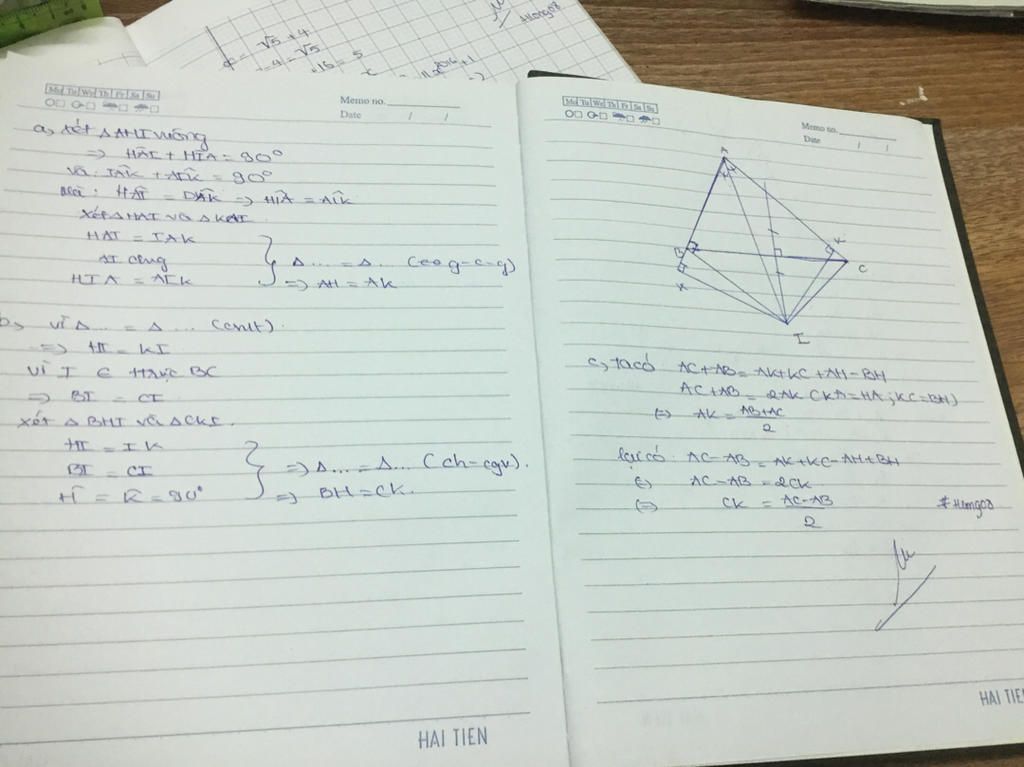 √5 + 4
= 4 - √5
+16 = 5
#Hong08
Mo Tu We Th Fr Sa Su
Memo no.
Date / /
a, Xét Δ AHI vuông
=> HÂI + HÎA = 90°
và: IÂK + AÎK = 90°
mà: HÂI = IÂK => HÎA = AÎK
Xét Δ HAI và Δ KAI
HAI = IAK
AI cung
HIA = AIK
} Δ ... = Δ ... (g-c-g)
=> AH = AK
b, vì Δ ... = Δ ... (cmt).
=> HI = KI
vì I ∈ trực BC
=> BI = CI
Xét Δ BHI và Δ CKI.
HI = IK
BI = CI
Ĥ = K̂ = 90°
} => Δ... = Δ... (ch-cgv).
=> BH = CK.
HAI TIEN
Mo Tu We Th Fr Sa Su
Memo no.
Date / /
A
B
K
C
H
I
c, ta có AC + AB = AK + KC + AH - BH
AC + AB = 2AK (KA = HA; KC = BH)
(=) AK = AB + AC / 2
lại có AC - AB = AK + KC - AH + BH
(=) AC - AB = 2CK
(=) CK = AC - AB / 2
#Hong08
HAI TIE